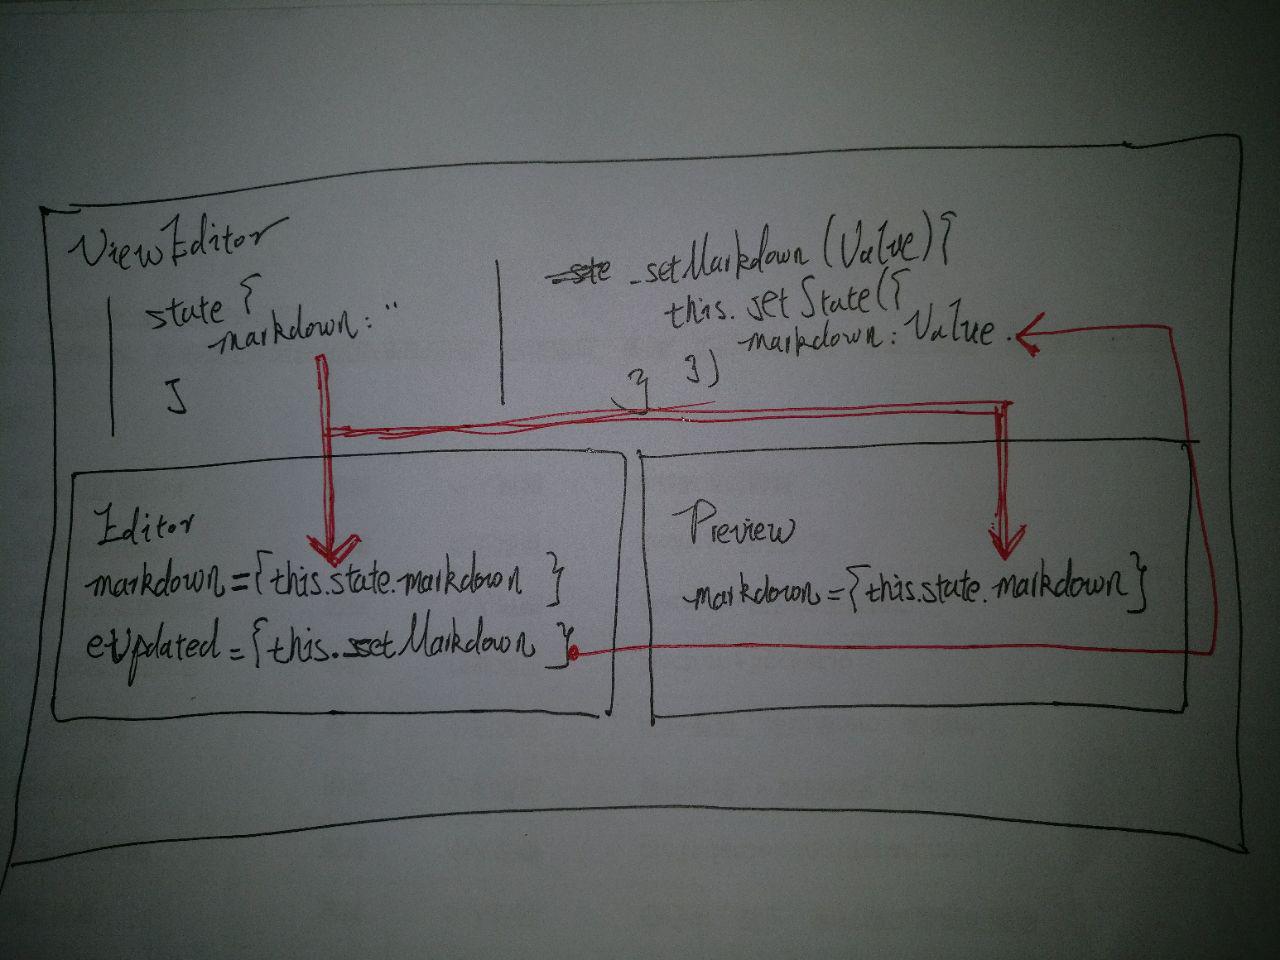 ViewEditor
state {
markdown: ''
}
_setMarkdown (Value) {
this.setState({
markdown: Value
})
}
Editor
markdown={this.state.markdown }
eUpdated={this.setMarkdown }
Preview
markdown={this.state.markdown}